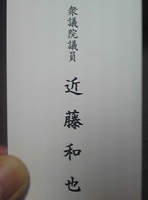 衆議院議員
近藤和也